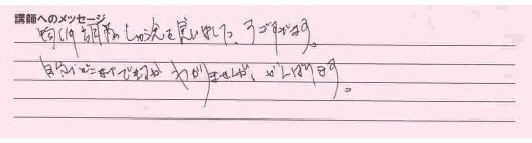 講師へのメッセージ
を見ました。すごすぎます。
自分がどこまでできるかわかりませんが、がんばります。